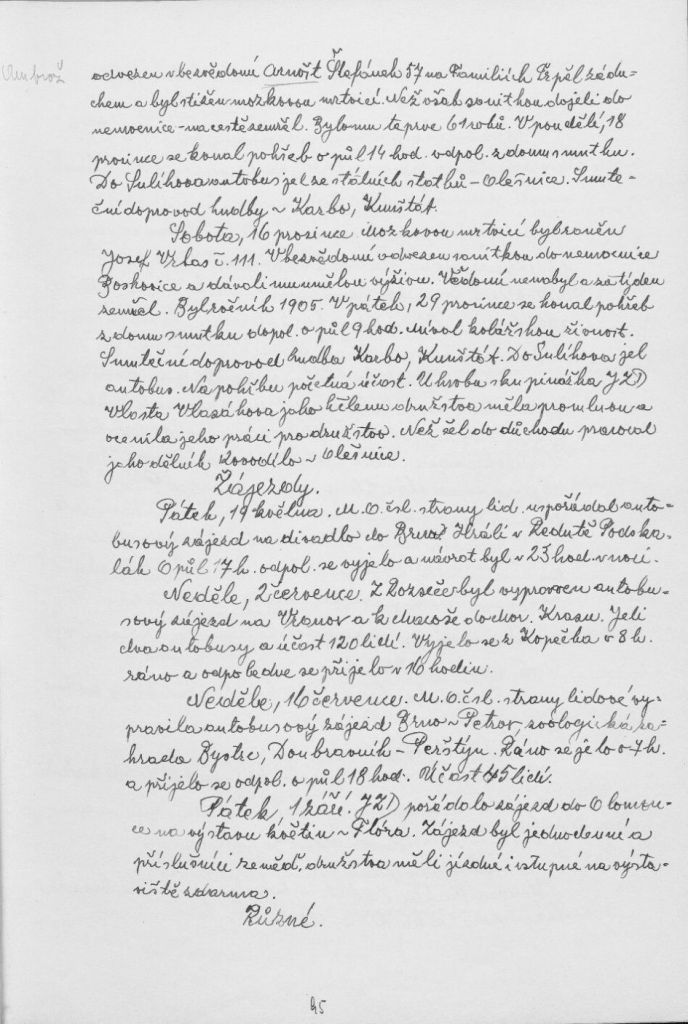 Ambrož
odvezen v bezvědomí Arnošt Štefánek 57 na Familiích Trpěl zádu-
chem a byl stižen mozkovou mrtvicí. Než však sanitkou dojeli do
nemocnice - na cestě zemřel. Bylo mu teprve 61 roků. V pondělí, 18
prosince se konal pohřeb o půl 14 hod. odpol. z domu smutku.
Do Sulíkova autobus jel ze státních statků - Olešnice. Smute-
ční doprovod hudby ~ Karbo, Kunštát.
Sobota, 16 prosince mozkovou mrtvicí byl raněn
Josef Vrbas č. 111. V bezvědomí odvezen sanitkou do nemocnice
Boskovice a dávali mu umělou výživu. Vědomí nenabyl a za týden
zemřel. Byl ročník 1905. V pátek, 29 prosince se konal pohřeb
z domu smutku dopol. o půl 9 hod. Míval kolářskou živnost.
Smuteční doprovod hudba Karbo, Kunštát. Do Sulíkova jel
autobus. Na pohřbu početná účast. U hrobu skupinářka JZD
Vlasta Vlasáková jako k členu družstva měla promluvu a
ocenila jeho práci pro družstvo. Než šel do důchodu pracoval
jako dělník Kovodílo ~ Olešnice.
Zájezdy.
Pátek, 19 května. M. O. čsl. strany lid. uspořádal auto-
busový zájezd na divadlo do Brna. Hráli v Redutě Podska-
lák o půl 17 h. odpol. se vyjelo a návrat byl v 23 hod. v noci.
Neděle, 2 července. Z Rozseče byl vypraven autobu-
sový zájezd na Vranov a k Macoše do Mor. Krasu. Jeli
dva autobusy a účast 120 lidí. Vyjelo se z Kopečka v 8 h.
ráno a odpoledne se přijelo v 16 hodin.
Neděle, 16 července. M. O. čsl. strany lidové vy-
pravila autobusový zájezd Brno ~ Petrov, zoologická za-
hrada Bystrc, Doubravník - Perštýn. Ráno se jelo o 7 h.
a přijelo se odpol. o půl 18 hod. Účast 45 lidí.
Pátek, 1 září. JZD pořádalo zájezd do Olomou-
ce na výstavu květin ~ Flóra. Zájezd byl jednodenní a
příslušníci zeměd. družstva měli jízdné i vstupné na výsta-
viště zdarma.
Různé.
45